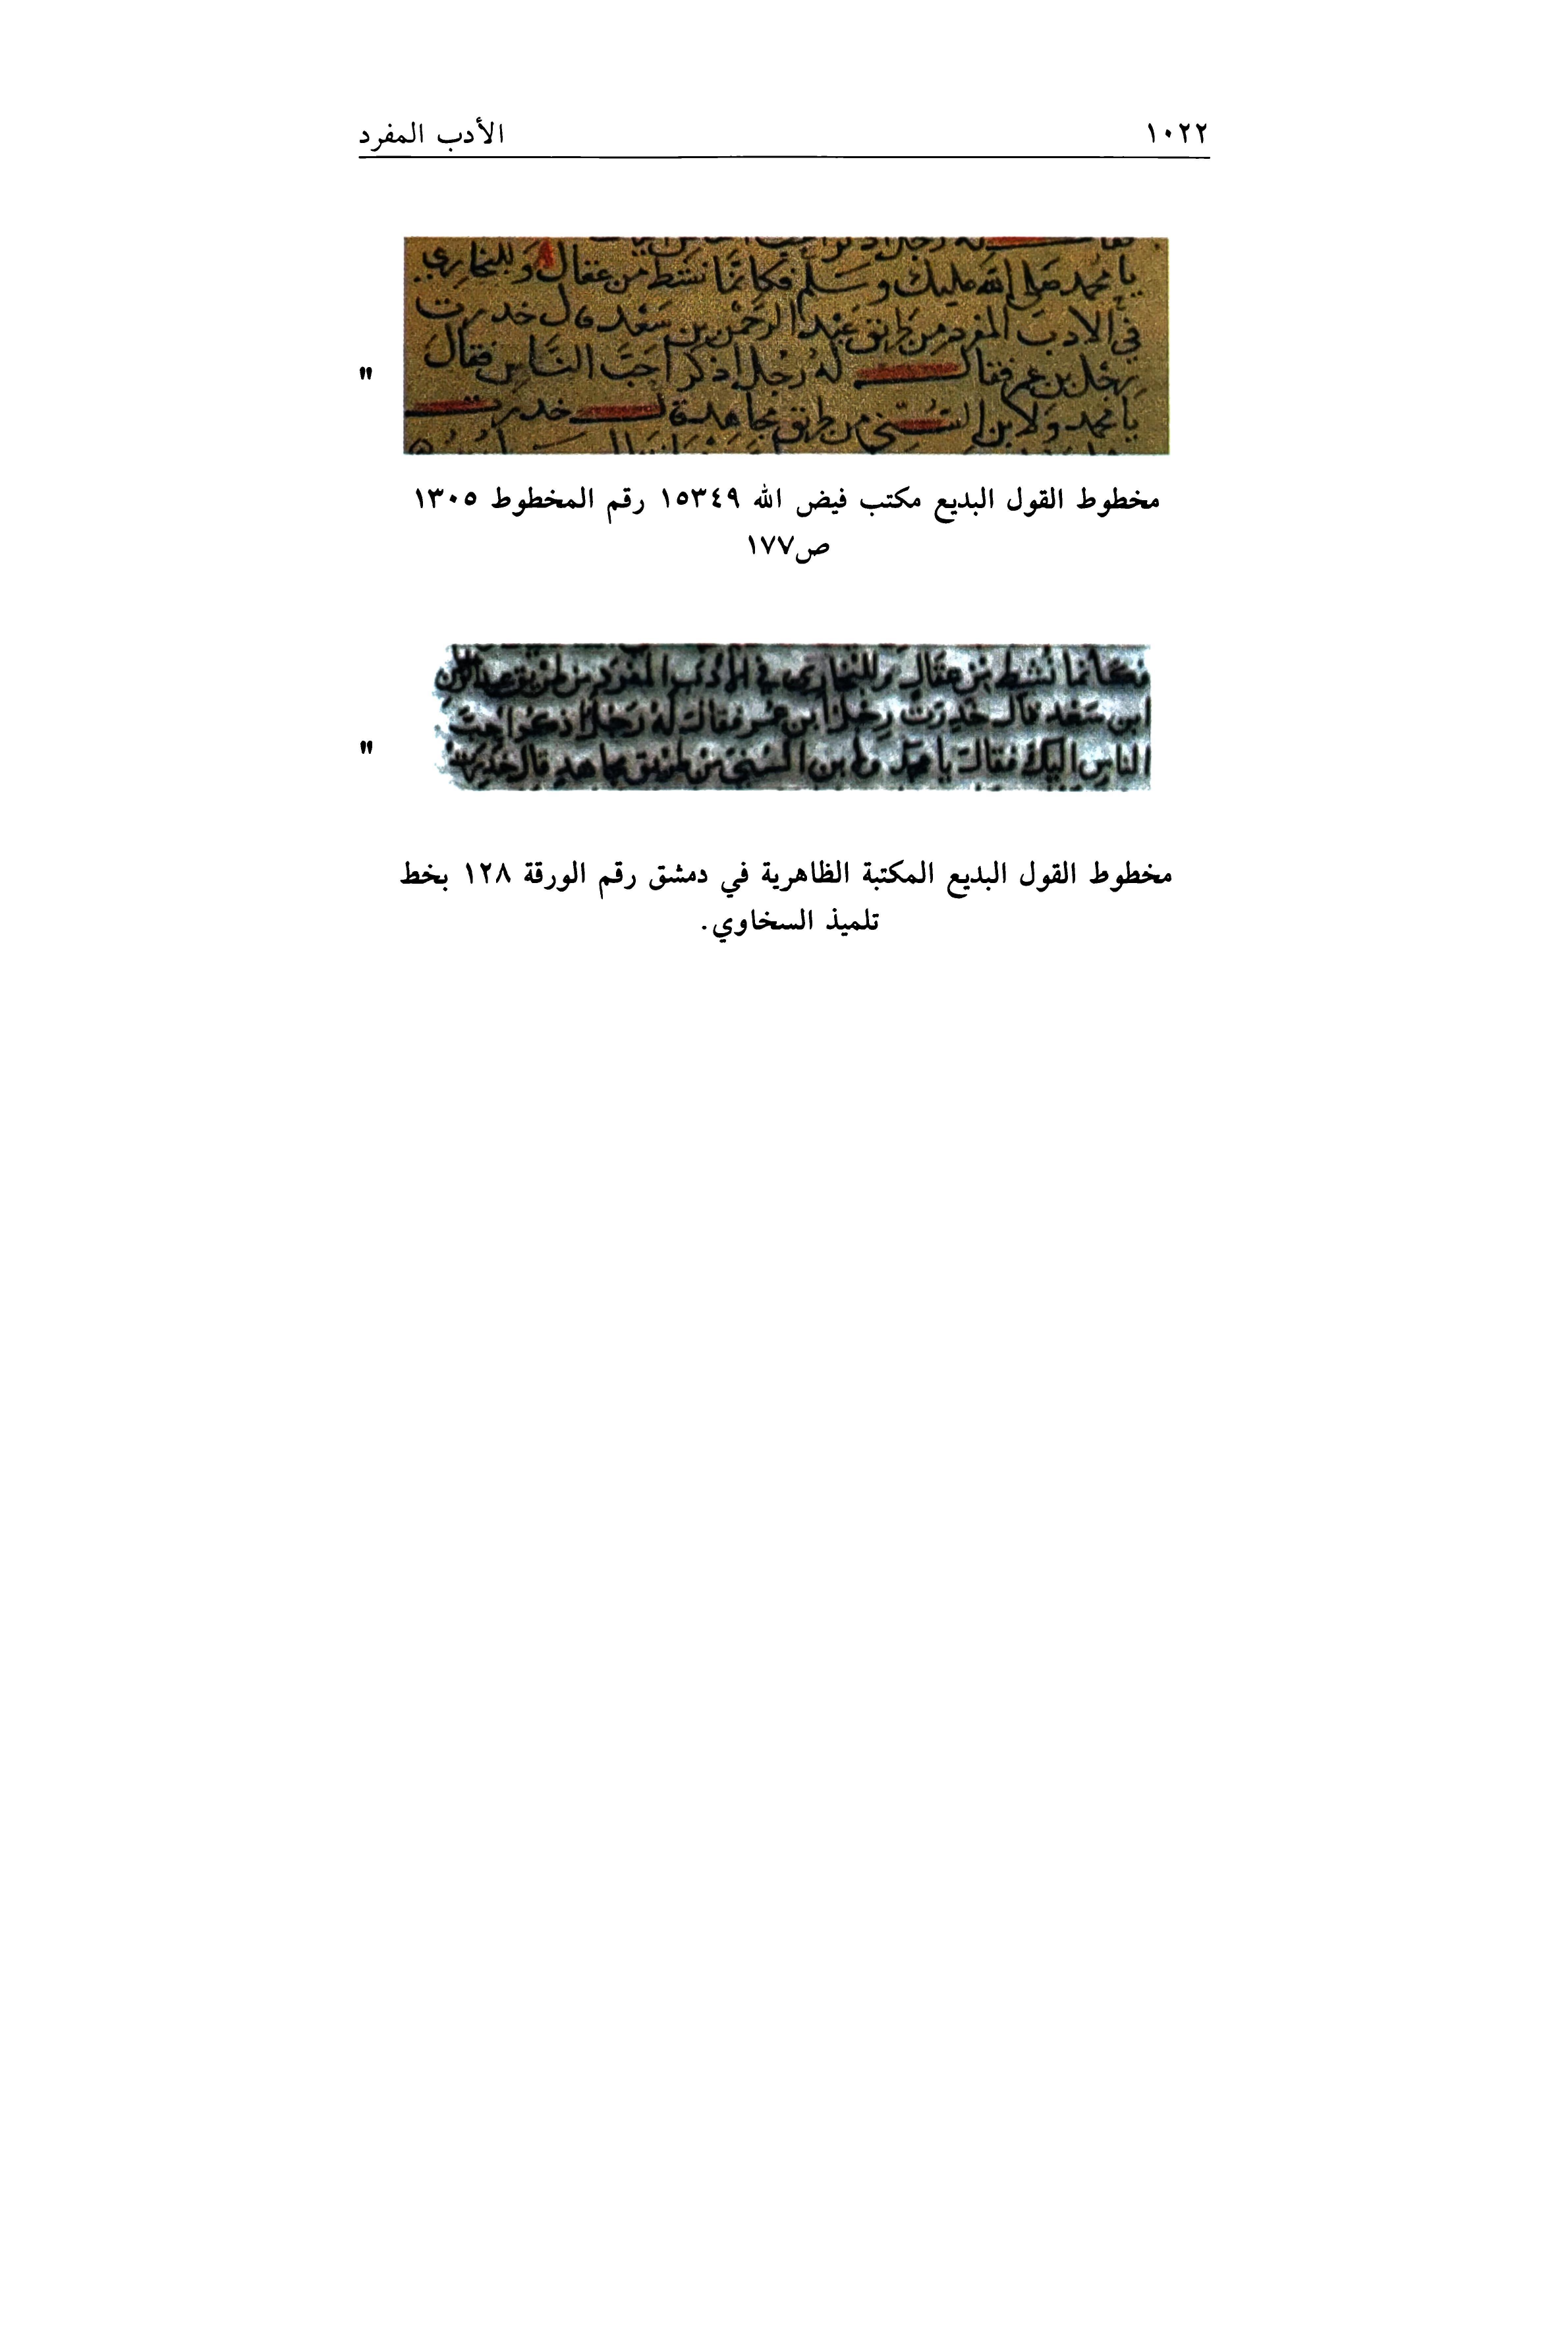 ١٠٢٢ الأدب المفرد
يا محمد صلى الله عليك وسلم فكانما نشط من عقال وللبخاري
في الادب المفرد من طريق عبد الرحمن بن سعد قال خدرت
رجل بن عمر فقال له رجل اذكر احب الناس فقال
يا محمد ولابن السني من طريق مجاهد قال خدرت
"
مخطوط القول البديع مكتب فيض الله ١٥٣٤٩ رقم المخطوط ١٣٠٥
ص١٧٧
فكانما نشط من عقال وللبخاري في الأدب المفرد من طريق عبد الرحمن
ابن سعد قال خدرت رجل ابن عمر فقال له رجل اذكر احب
الناس اليك فقال يا محمد ولابن السني من طريق مجاهد قال خدرت
"
مخطوط القول البديع المكتبة الظاهرية في دمشق رقم الورقة ١٢٨ بخط
تلميذ السخاوي.